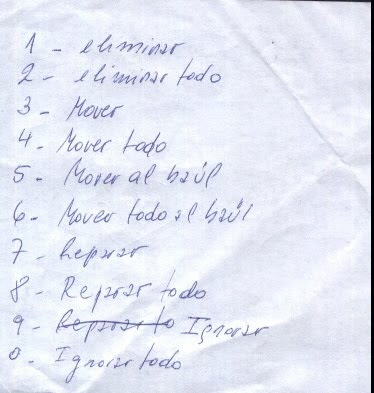 1 - eliminar
2 - eliminar todo
3 - Mover
4 - Mover todo
5 - Mover al baúl
6 - Mover todo al baúl
7 - Reparar
8 - Reparar todo
9 - Reparar to Ignorar
0 - Ignorar todo